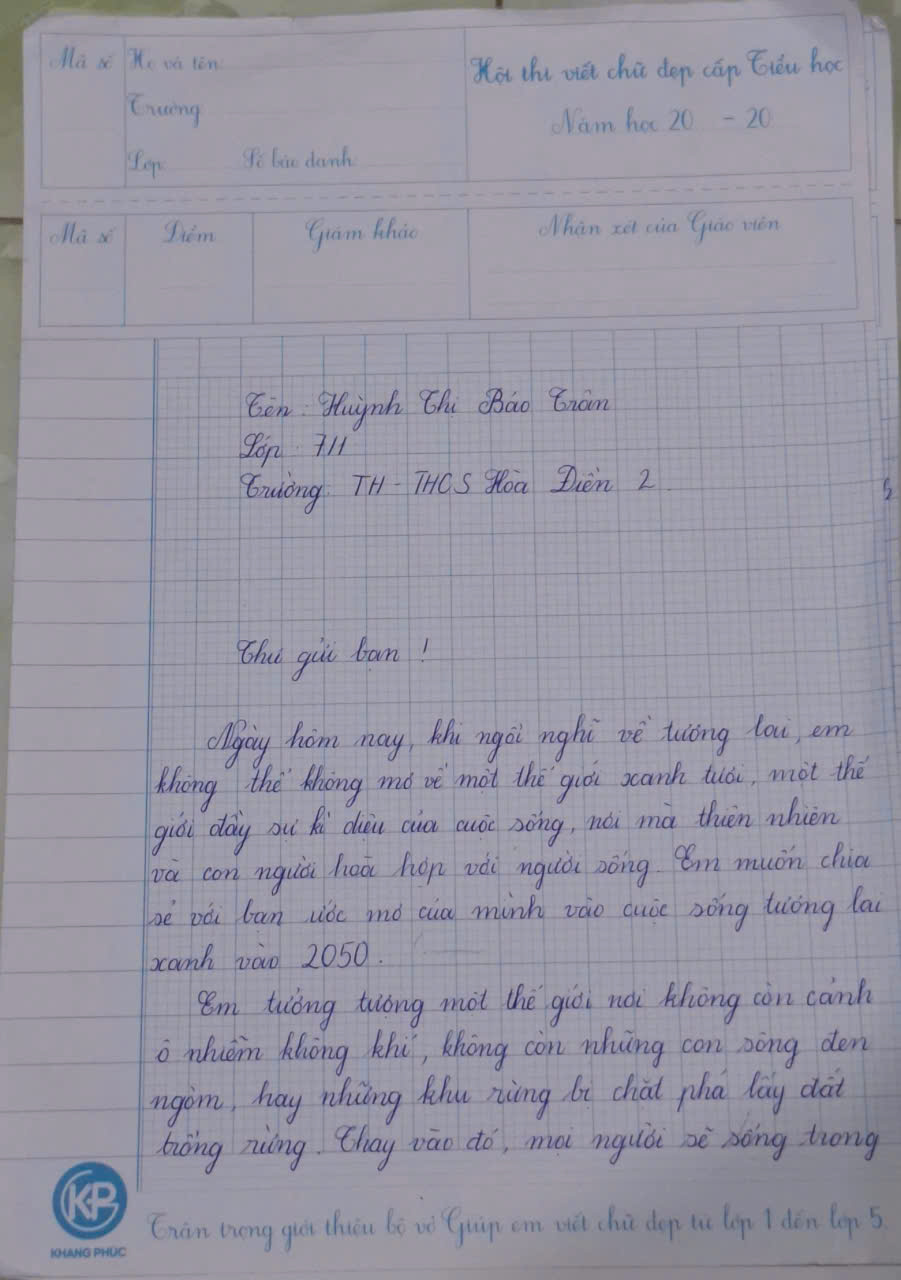 Mã số Họ và tên:
Trường
Lớp Số báo danh
Hội thi viết chữ đẹp cấp Tiểu học
Năm học 20 - 20
Mã số Điểm Giám khảo Nhận xét của Giáo viên
Tên: Huỳnh Thị Bảo Trân
Lớp: 7/1
Trường: TH - THCS Hòa Điền 2
Thư gửi bạn!
Ngày hôm nay, khi ngồi nghĩ về tương lai, em
không thể không mơ về một thế giới xanh tươi, một thế
giới đầy sự kì diệu của cuộc sống, nơi mà thiên nhiên
và con người hoà hợp với người sống. Em muốn chia
sẻ với bạn ước mơ của mình vào cuộc sống tương lai
xanh vào 2050.
Em tưởng tượng một thế giới nơi không còn cảnh
ô nhiễm không khí, không còn những con sông đen
ngòm, hay những khu rừng bị chặt phá lấy đất
trồng rừng. Thay vào đó, mọi người sẽ sống trong
KP
KHANG PHÚC
Trân trọng giới thiệu bộ vở Giúp em viết chữ đẹp từ lớp 1 đến lớp 5